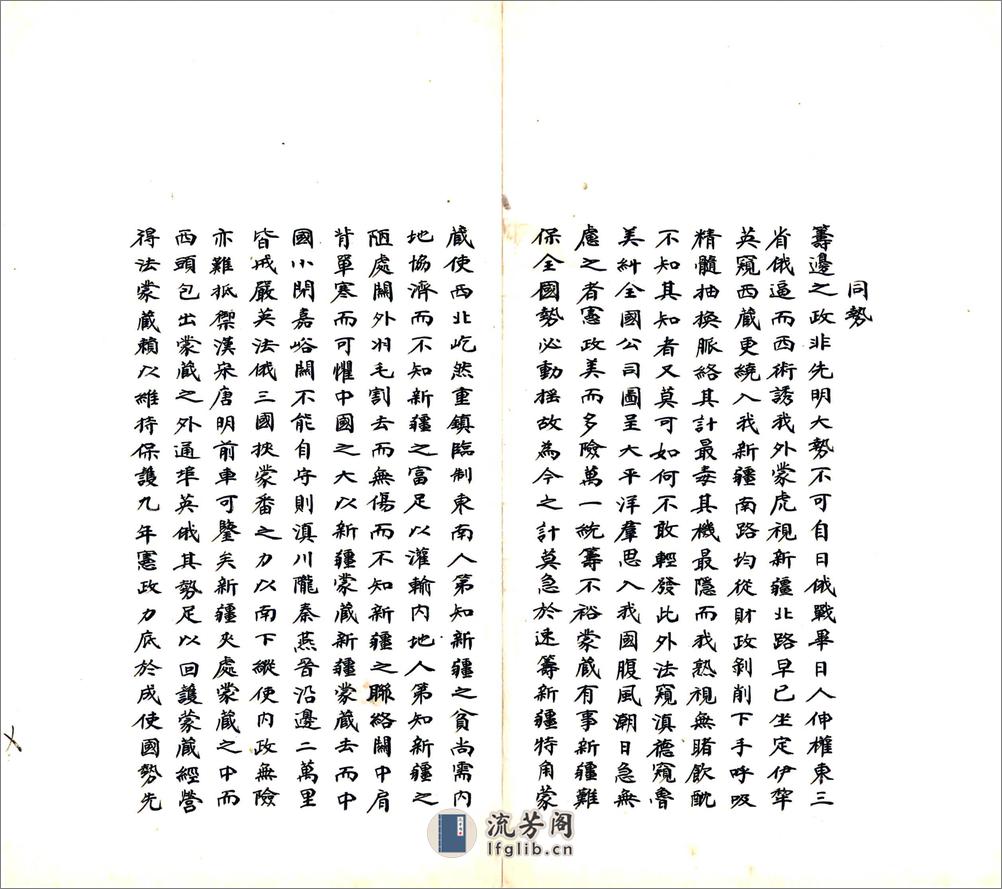 同勢
籌邊之政非先明大勢不可自日俄戰畢日人伸權東三
省俄逼而西術誘我外蒙虎視新疆北路早已坐定伊犂
英窺西藏更繞入我新疆南路均從財政剝削下手呼吸
精髓抽換脈絡其計最毒其機最隱而我熟視無睹飲酖
不知其知者又莫可如何不敢輕發此外法窺滇德窺魯
美糾全國公司圖呈大平洋羣思入我國腹風潮日急無
慮之者憲政美而多險萬一統籌不裕蒙藏有事新疆難
保全國勢必動搖故為今之計莫急於速籌新疆特角蒙
藏使西北屹然重鎮臨制東南人第知新疆之貧尚需內
地協濟而不知新疆之富足以灌輸內地人第知新疆之
陋處關外羽毛割去而無傷而不知新疆之聯絡關中肩
背單寒而可懼中國之大以新疆蒙藏新疆蒙藏去而中
國小閉嘉峪關不能自守則滇川隴秦燕晉沿邊二萬里
皆戒嚴英法俄三國挾蒙番之力以南下縱使內政無險
亦難抵禦漢宋唐明前車可鑒矣新疆夾處蒙藏之中而
西頭包出蒙藏之外通埠英俄其勢足以回護蒙藏經營
得法蒙藏賴以維持保護九年憲政力底於成使國勢先
流芳阁
lfglib.cn